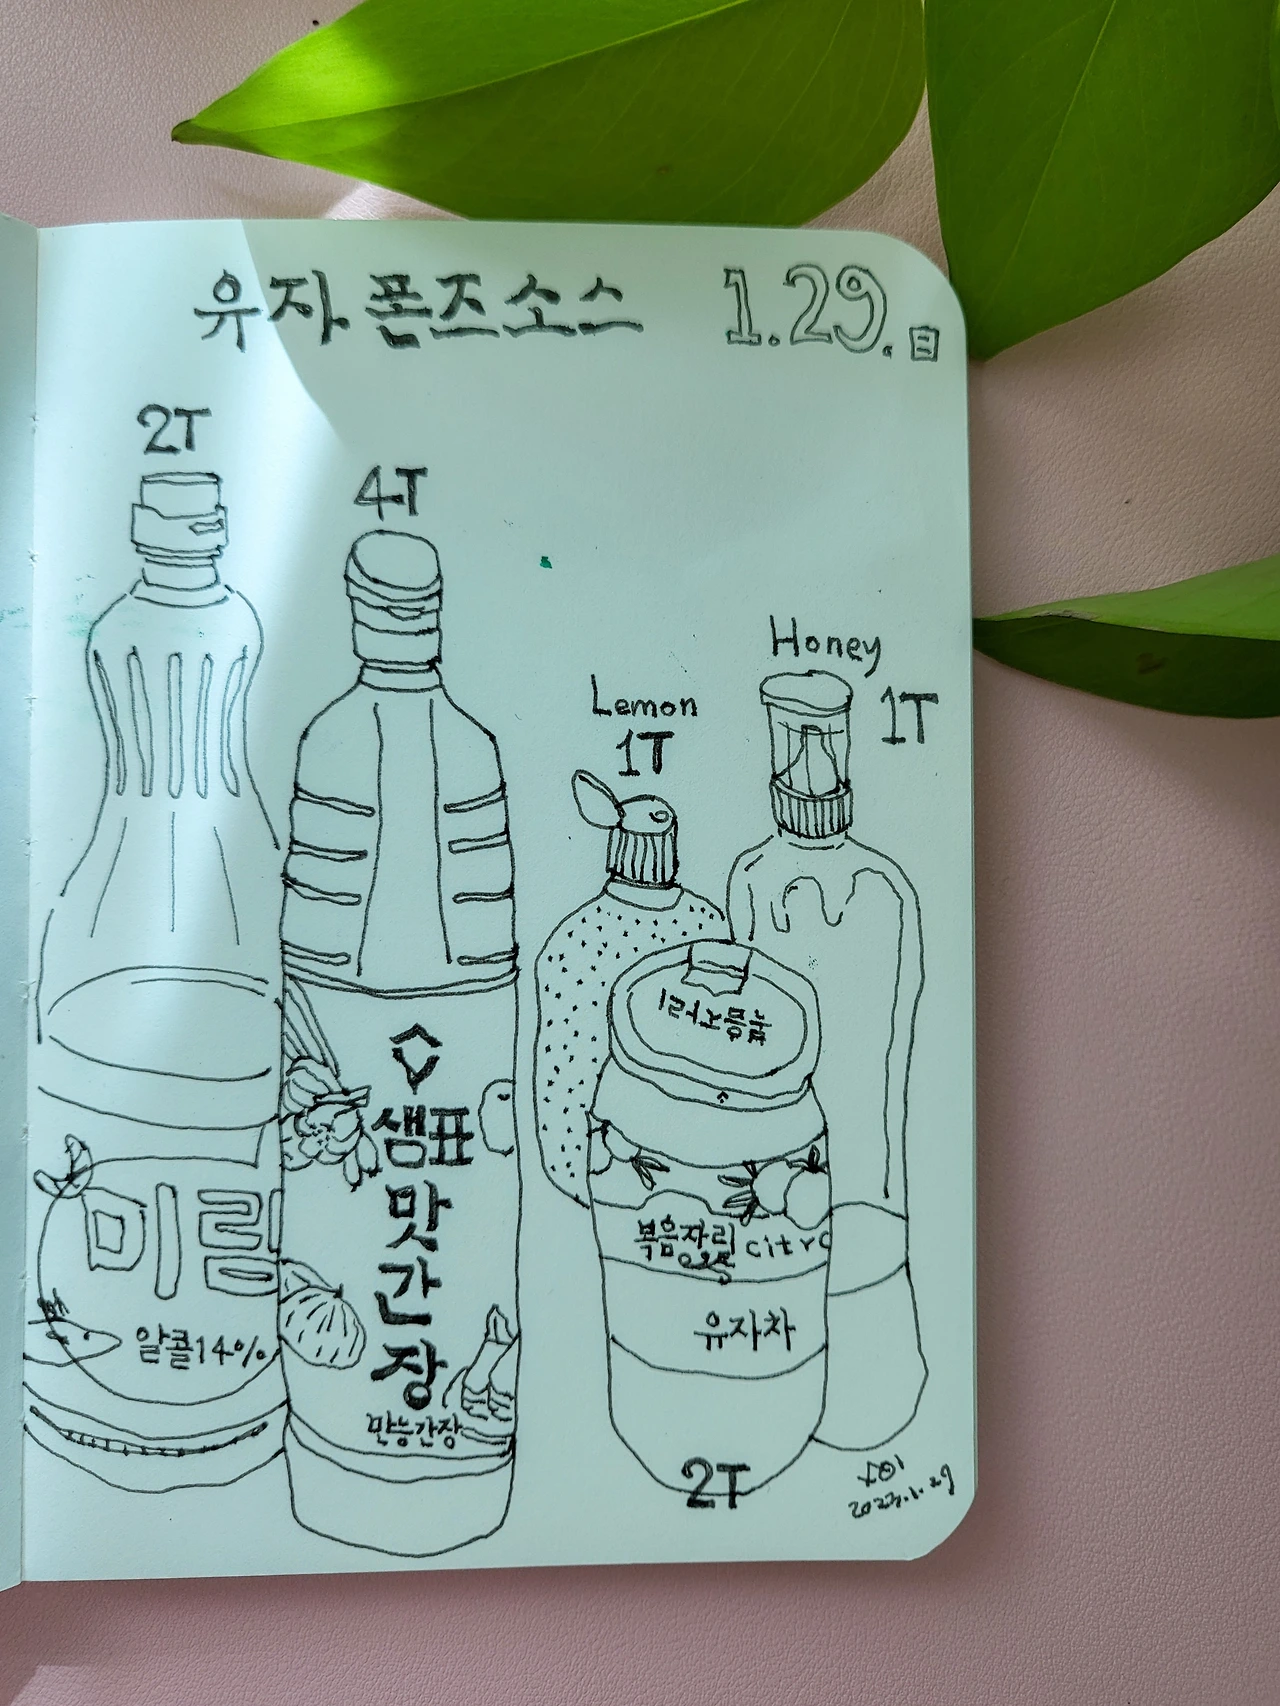 유자 폰즈소스 1.29.日
2T
4T
Lemon
1T
Honey
1T
미림
알콜14%
샘표
맛
간
장
만능간장
복음자리 citrc
유자차
2T
2023.1.29